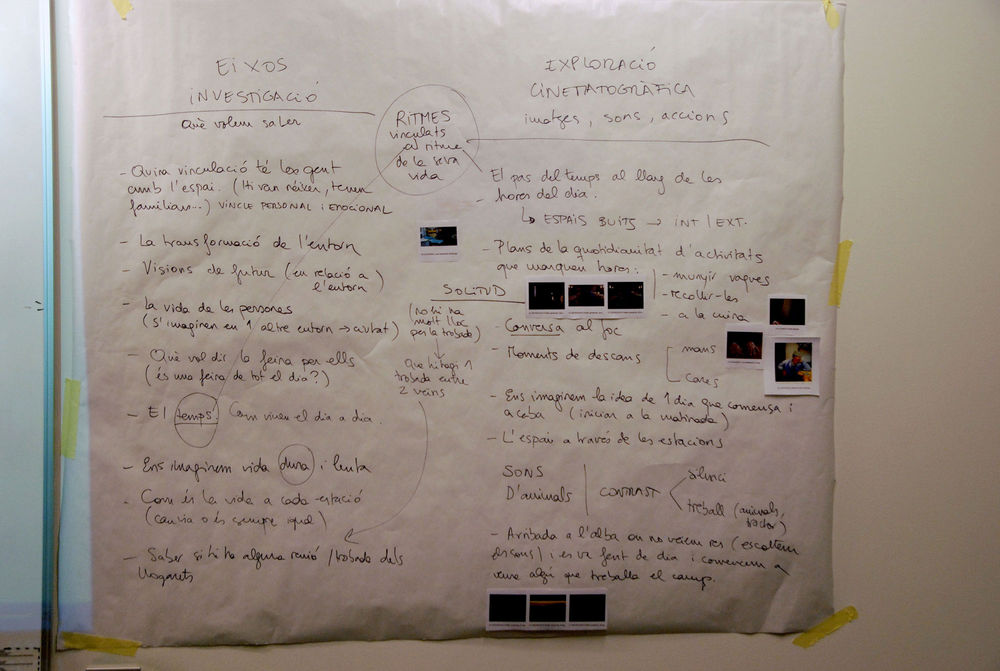 EIXOS
INVESTIGACIÓ
Què volem saber
- Quina vinculació té les gent
amb l'espai. (Hi van néixer, tenen
familiars...) VINCLE PERSONAL i EMOCIONAL
- La transformació de l'entorn
- Visions de futur (en relació a
l'entorn)
- la vida de les persones
(s'imaginen en 1 altre entorn → ciutat)
- Què vol dir la feina per ells
(és una feina de tot el dia?)
- El temps. Com viuen el dia a dia.
- Ens imaginem vida dura i lenta
- Com és la vida a cada estació
(canvia o és sempre igual)
- Saber si hi ha alguna reunió / trobada dels
llogarets
RITMES
vinculats
al ritme
de la seva
vida
SOLITUD
(no hi ha
molt lloc
per la trobada)
Que hi hagi 1
trobada entre
2 veïns
EXPLORACIÓ
CINEMATOGRÀFICA
imatges, sons, accions
El pas del temps al llarg de les
- hores del dia.
↳ ESPAIS BUITS → INT / EXT.
- Plans de la quotidianitat d'activitats
que marquen hores:
- munyir vaques
- recollir-les
- a la cuina
- Conversa al foc
- Moments de descans
mans
cares
- Ens imaginem la idea de 1 dia que comença i
acaba (iniciar a la matinada)
- L'espai a través de les estacions
SONS
D'animals
CONTRAST
silenci
treball (animals,
tractor)
- Arribada a l'alba on no veiem res (escoltem
els sons) i es va fent de dia i comencem a
veure algú que treballa el camp.